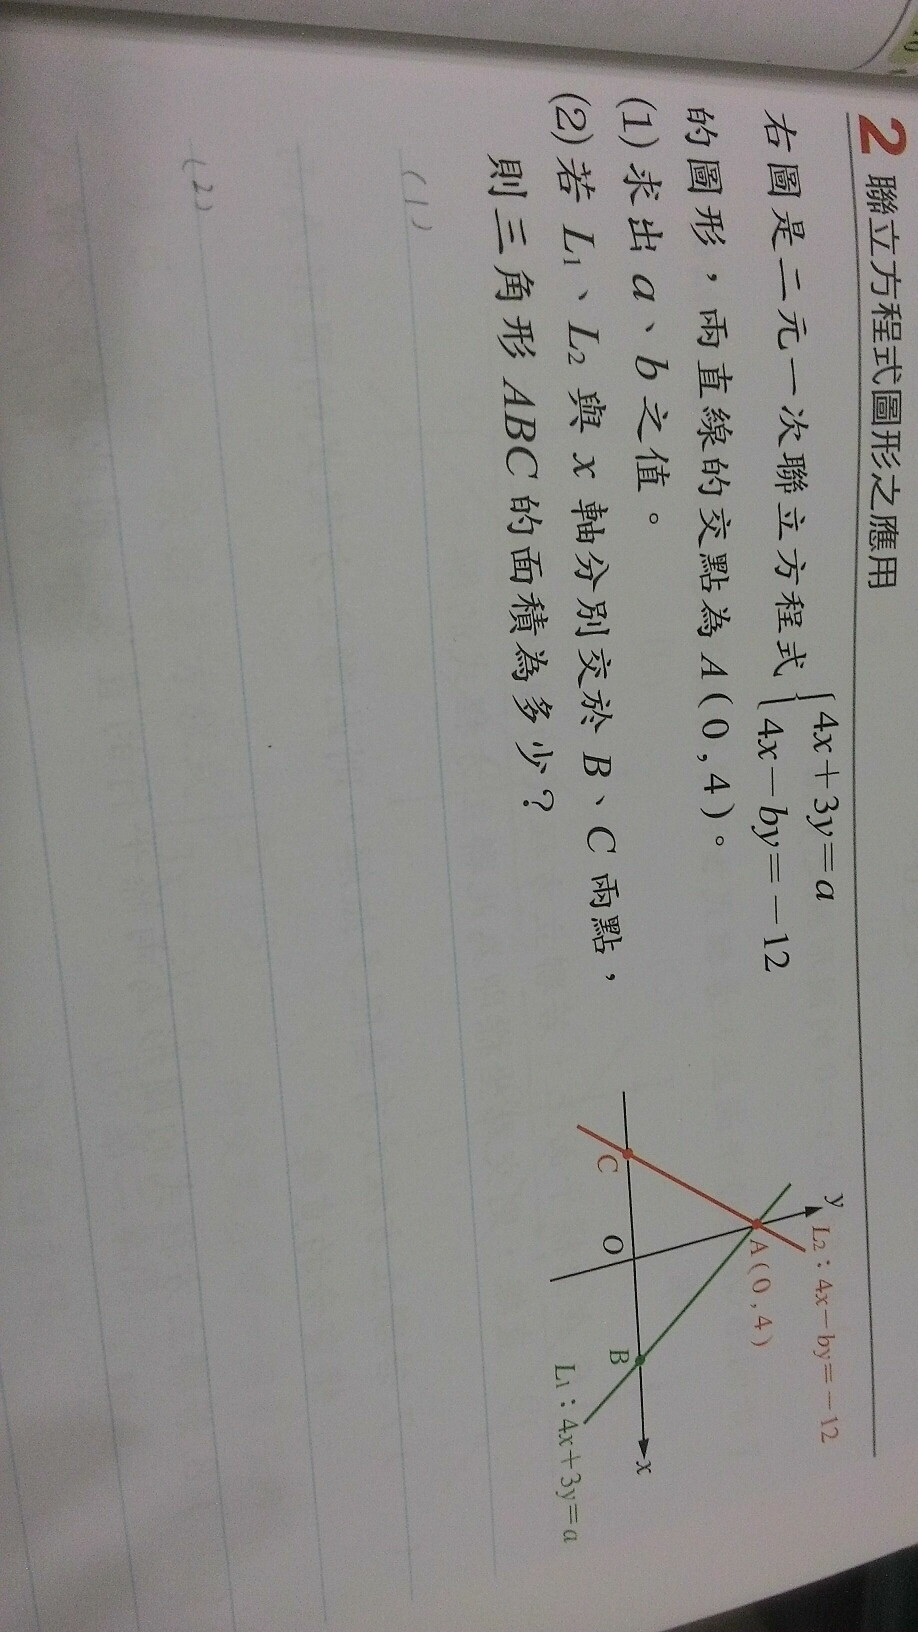 2 聯立方程式圖形之應用
右圖是二元一次聯立方程式 { 4x+3y=a
4x-by=-12
的圖形，兩直線的交點為 A(0,4)。
(1) 求出 a、b 之值。
(2) 若 L1、L2 與 x 軸分別交於 B、C 兩點，
則三角形 ABC 的面積為多少？
y
L2：4x-by=-12
A(0,4)
C
O
B
x
L1：4x+3y=a
(1)
(2)